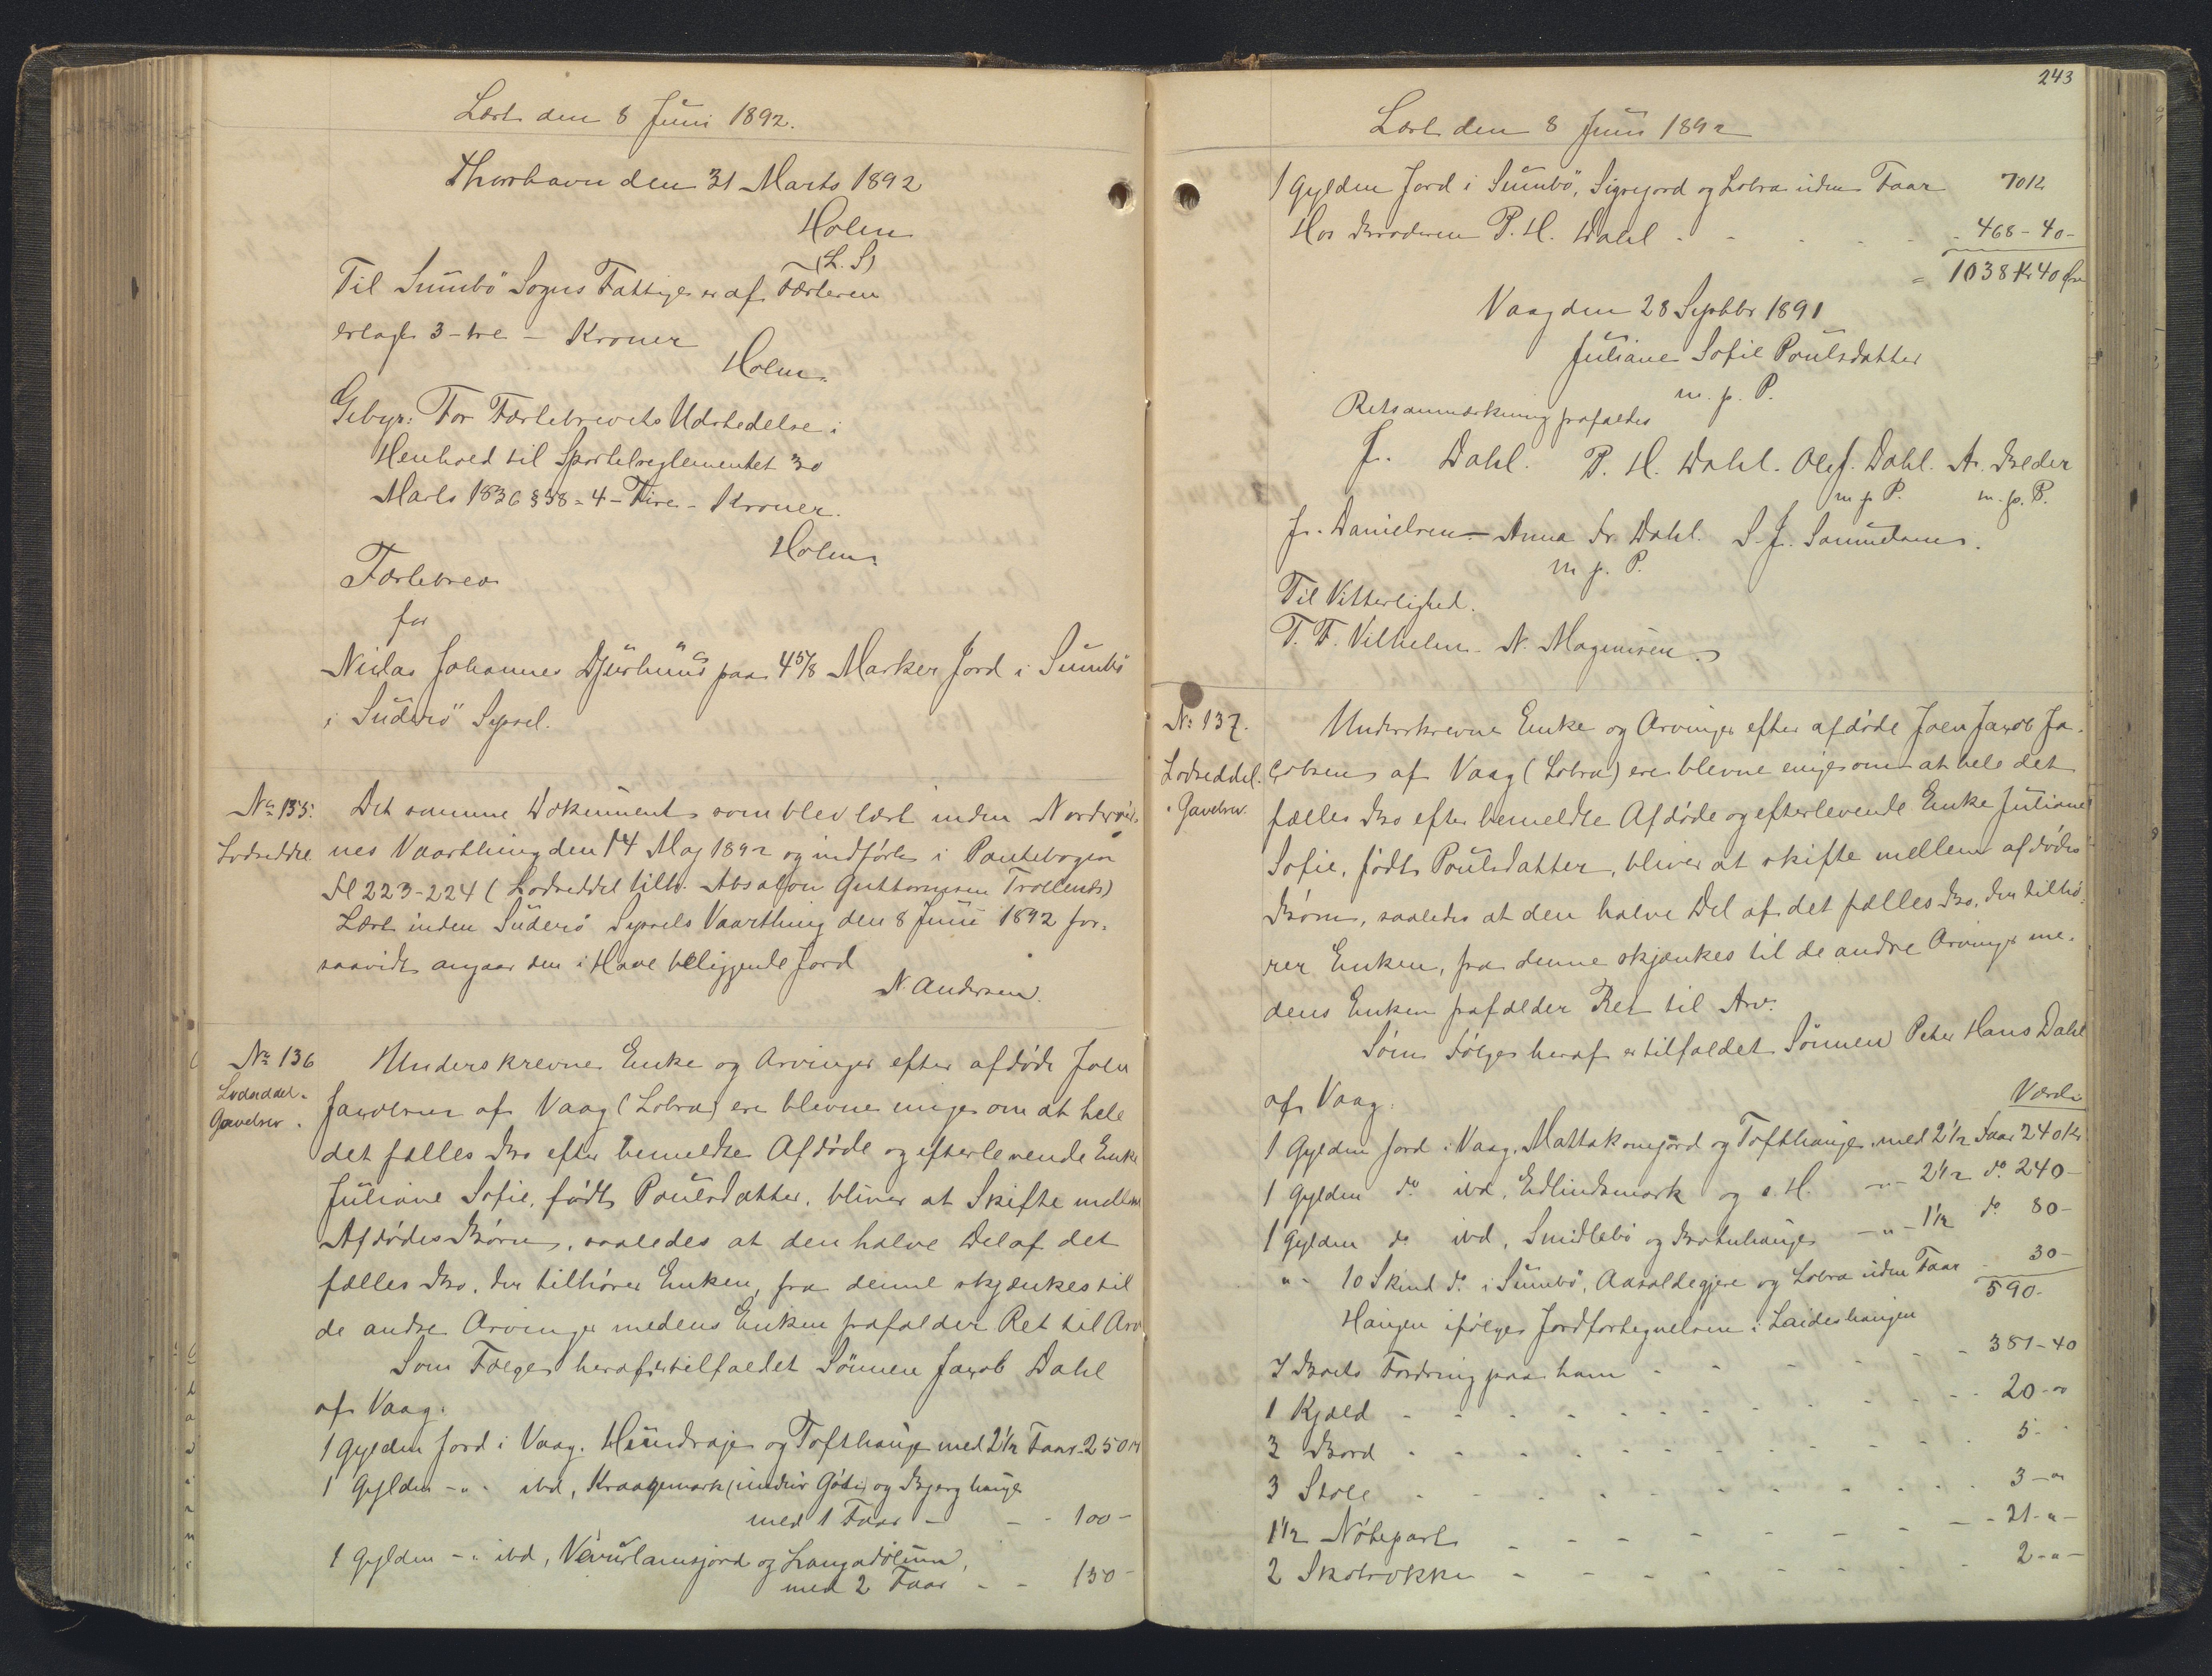 Læst den 8 Juni 1892.
Thorshavn den 31 Marts 1892
Holm
(L. S)
Til Sumbö Sogns Fattige er af Fæsteren
erlagt 3 - tre - Kroner
Holm.
Gebyr: For Fæstebrevets Udstedelse i
Henhold til Sportelreglementet 30
Marts 1836 § 38 = 4 - Fire - Kroner.
Holm.
Fæstebrev
for
Niclas Johannes Djurhuus paa 4 5/8 Marker Jord i Sumbö
i Suderö Syssel.
No 135.
Lodseddel
Det samme Dokument som blev læst inden Norderöer-
nes Vaarthing den 14 Maj 1892 og indført i Pantebogen
Fl 223-224 (Lodseddel tilh. Absalon Guttormsen Trøllenæs)
Læst inden Suderö Syssels Vaarthing den 8 Juni 1892 for-
saavidt angaar den i Hove beliggende Jord
N. Andersen.
No 136
Lodseddel -
Gavebrev.
Underskrevne Enke og Arvinger efter afdøde Joen
Jacobsen af Vaag (Lobra) ere blevne enige om at hele
det fælles Bo efter bemeldte Afdøde og efterlevende Enke
Juliane Sofie, født Poulsdatter, bliver at Skifte mellem
Afdødes Børn, saaledes at den halve Del af det
fælles Bo, der tilhører Enken, fra denne skjænkes til
de andre Arvinger medens Enken frafalder Ret til Arv
Som Følge heraf er tilfaldet Sönnen Jacob Dahl
af Vaag:
1 Gylden Jord i Vaag, Heundraje og Tofthauge med 2 1/2 Faar - 250 Kr
1 Gylden - " - ibd, Kraagemark (undir Gøtu) og Bjerghauge
med 1 Faar - - - 100 -
1 Gylden - " ibd, Vevurlamsjord og Langadølum,
med 2 Faar - - 150 -
243
Læst den 8 Juni 1892
1 Gylden Jord i Sumbö, Sigvejord og Lobra uden Faar 70 Kr
Hos Broderen P. H. Dahl - - - - - 468 - 40 -
= 1038 Kr 40 Øre
Vaag den 28 Septbr 1891
Juliane Sofie Poulsdatter
m. p. P.
Retsanmærkning frafaldes
J. Dahl. P. H. Dahl. Ole J. Dahl. A. Beder
m p P. m. p. P.
J. Danielsen - Anna Fr. Dahl. S. J. Samuelsen.
m p. P.
Til Vitterlighed.
T. F. Vilhelm. N. Magnusen.
No 137.
Lodseddel.
Gavebrev.
Underskrevne Enke og Arvinger efter afdøde Joen Jacob Ja-
cobsen af Vaag (Lobra) ere blevne enige om at hele det
fælles Bo efter bemeldte Afdøde og efterlevende Enke Juliane
Sofie, født Poulsdatter, bliver at skifte mellem afdødes
Børn, saaledes at den halve Del af det fælles Bo, der tilhø-
rer Enken, fra denne skjænkes til de andre Arvinger me-
dens Enken frafalder Ret til Arv.
Som Følge heraf er tilfaldet Sönnen Peter Hans Dahl
af Vaag:
Værdi
1 Gylden Jord i Vaag, Mattakonujord og Tofthauge, med 2 1/2 Faar 240 Kr
1 Gylden do ibd, Edlindsmark og s. H. - " - 2 1/2 do 240 -
1 Gylden do ibd, Smidlebö og Bratuhauge - " - 1 1/2 do 80 -
" - 10 Skind do i Sumbö, Aasoldegjere og Lobra uden Faar - 30 -
590 -
Haugen ifølge Jordfortegnelsen i Laideshaugen
I Boets Fordring paa ham - - - - - 381 - 40
1 Kjæld - - - - - - - 20 - "
2 Bord - - - - - - - 5 -
3 Stole - - - - - - - 3 - "
1 1/2 Nótepart - - - - - - 21 - " -
2 Skotrokke - - - - - - 2 - " -